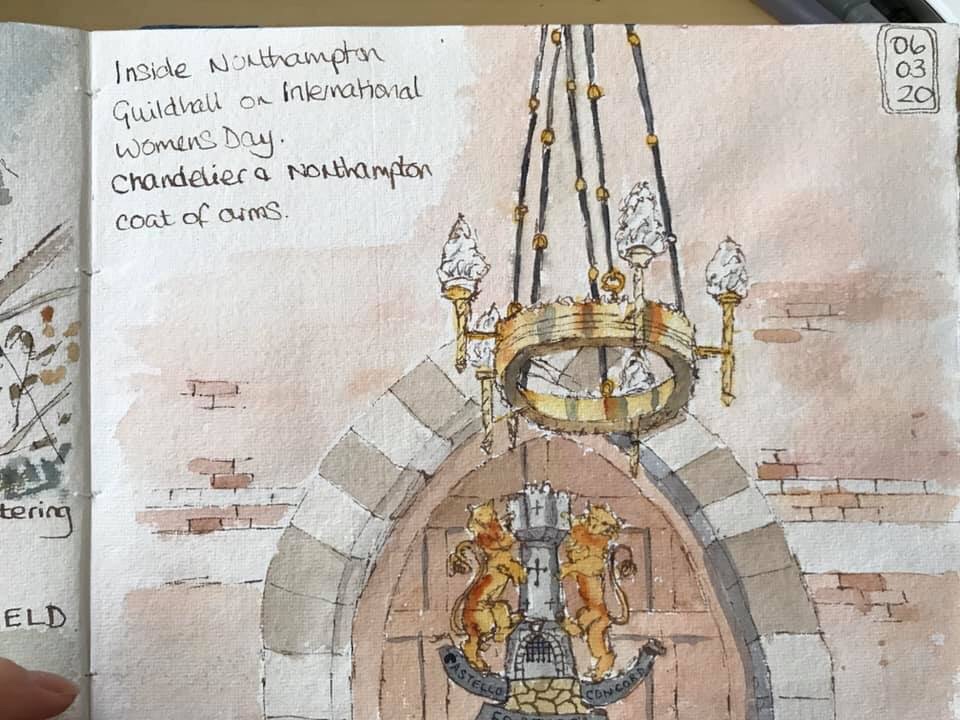 Inside Northampton
Guildhall on International
Womens Day.
Chandelier & Northampton
coat of arms.
06
03
20
tering
ELD
CASTELLO
CONCORD